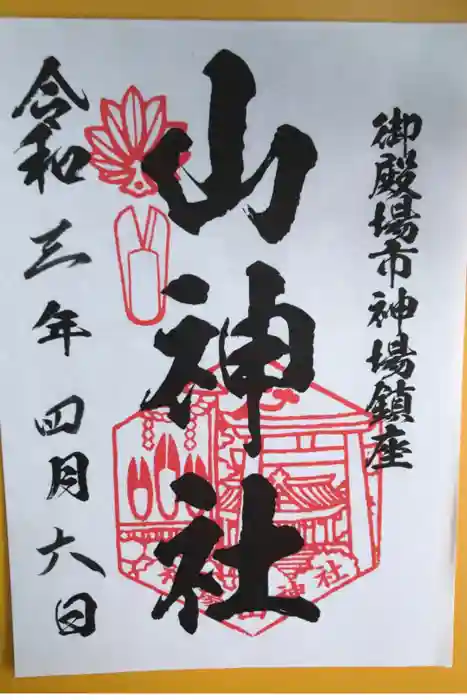 御殿場市神場鎮座
山神社
令和三年四月六日